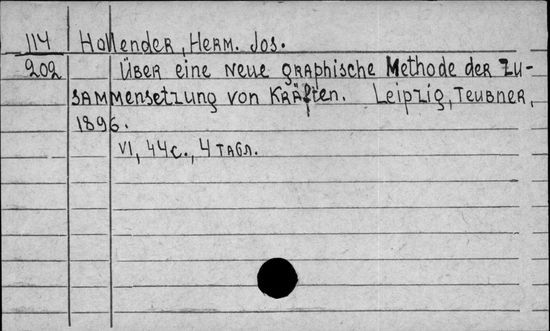 114 Hollender, Herm. Jos.
202 Über eine neue graphische Methode der Zu-
sammensetzung von Kräften. Leipzig, Teubner,
1896.
VI, 44 с., 4 табл.